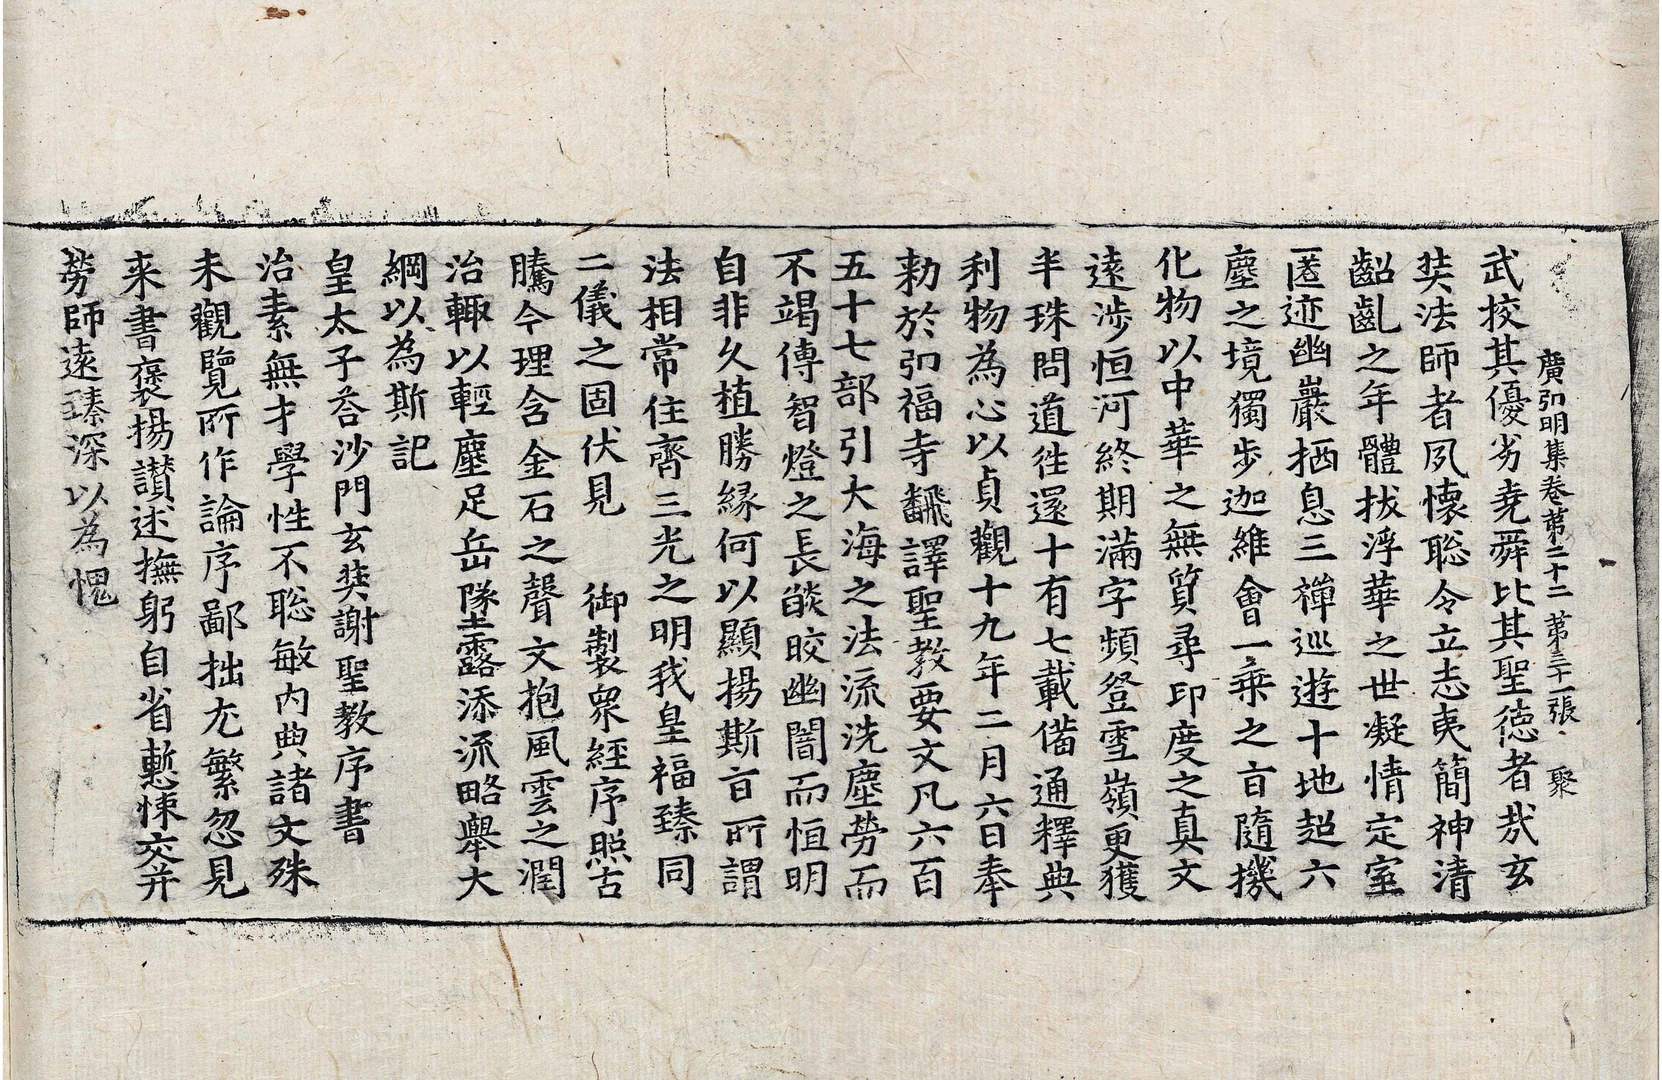 廣弘明集卷第二十二 第三十一張 聚
武挍其優劣堯舜比其聖德者㢤玄
奘法師者夙懷聡令立志夷簡神清
齠齓之年體拔浮華之世凝情定室
匿迹幽巖栖息三禪巡遊十地超六
塵之境獨步迦維會一乘之旨隨機
化物以中華之無質尋印度之真文
遠涉恒河終期滿字頻登雪嶺更獲
半珠問道徃還十有七載俻通釋典
利物為心以貞觀十九年二月六日奉
勑於弘福寺飜譯聖教要文凡六百
五十七部引大海之法流洗塵勞而
不竭傳智燈之長皎幽闇而恒明
自非久植勝緣何以顯揚斯旨所謂
法相常住齊三光之明我皇福臻同
二儀之固伏見 御製衆經序照古
騰今理含金石之聲文抱風雲之潤
治輙以輕塵足岳墜露添流略舉大
綱以為斯記
皇太子荅沙門玄奘謝聖教序書
治素無才學性不聡敏內典諸文殊
未觀覽所作論序鄙拙尤繁忽見
来書褒揚讃述撫躬自省慙悚交并
勞師遠臻深以為愧